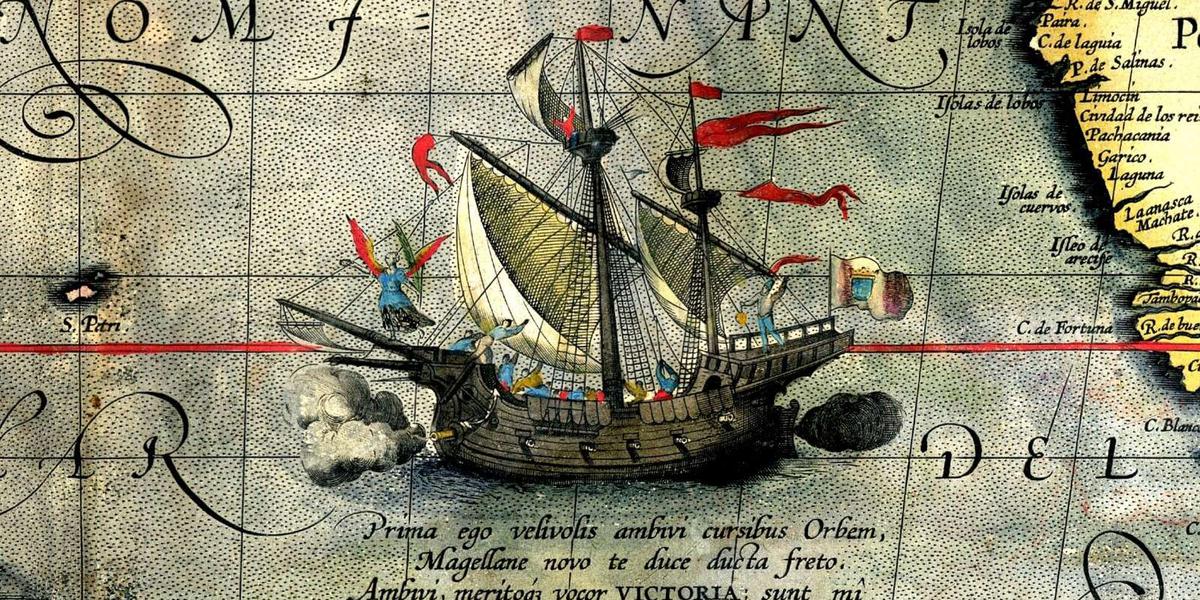 NOMI= NANT,
R. de S. Miguel.
Isola de lobos
Paira.
C. de laguia
P. de Salinas.
Isolas de lobos
Limocin
Cividad de los rei
Pachacania
Garico.
Laguna
Isolas de cuervos
Laanasca
Machate
Isleo de arecife
S. Petri
C. de Fortuna
R. de bue
C. Blanc
AR DEL
Prima ego velivolis ambivi cursibus Orbem,
Magellane novo te duce ducta freto.
Ambivi, meritoq; vocor VICTORIA: sunt mî